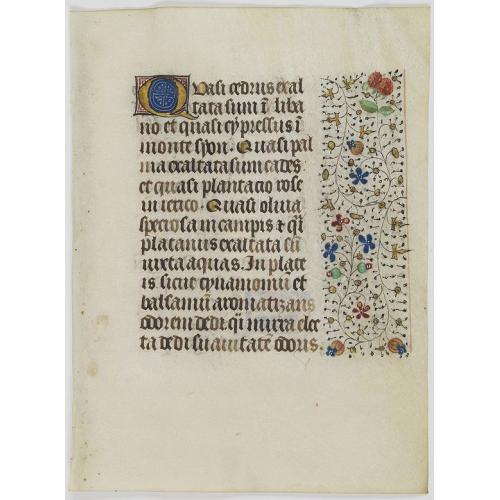 Quasi cedrus exal
tata sum ī liba
no et quasi cypressus ī
monte syon. Quasi pal
ma exaltata sum cades
et quasi plantacio rose
in ierico. Quasi oliua
speciosa in campis ⁊ q̄i
platanus exaltata sū
iuxta aquas. In plate
is sicut cynamomū et
balsamū aromatizans
odorem dedi qi̅ mirra elec
ta dedi suauitatē odoris.